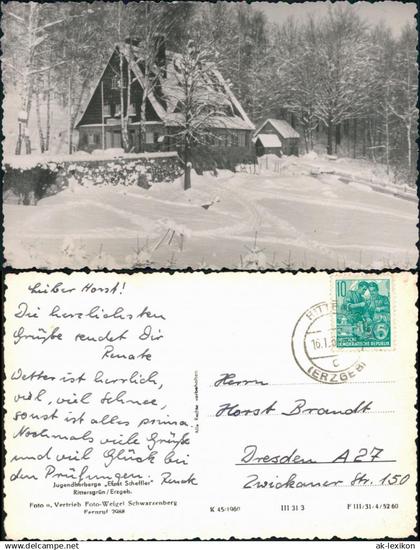 Lieber Horst!
Die herzlichsten
Grüße sendet Dir
Renate
Wetter ist herrlich,
viel, viel Schnee,
sonst ist alles prima.
Nochmals viele Grüße
und viel Glück bei
den Prüfungen. Renate
Jugendherberge „Ernst Scheffler"
Rittersgrün/Erzgeb.
Foto u. Vertrieb Foto-Weigel Schwarzenberg
Fernruf 2088
Alle Rechte vorbehalten
K 45/1960 III 31 3 F III/31/4/52 60
10
DEUTSCHE
DEMOKRATISCHE REPUBLIK
(ERZGEB)
c
Herrn
Horst Brandt
Dresden A 27
Zwickauer Str. 150
© ak-lexikon.com